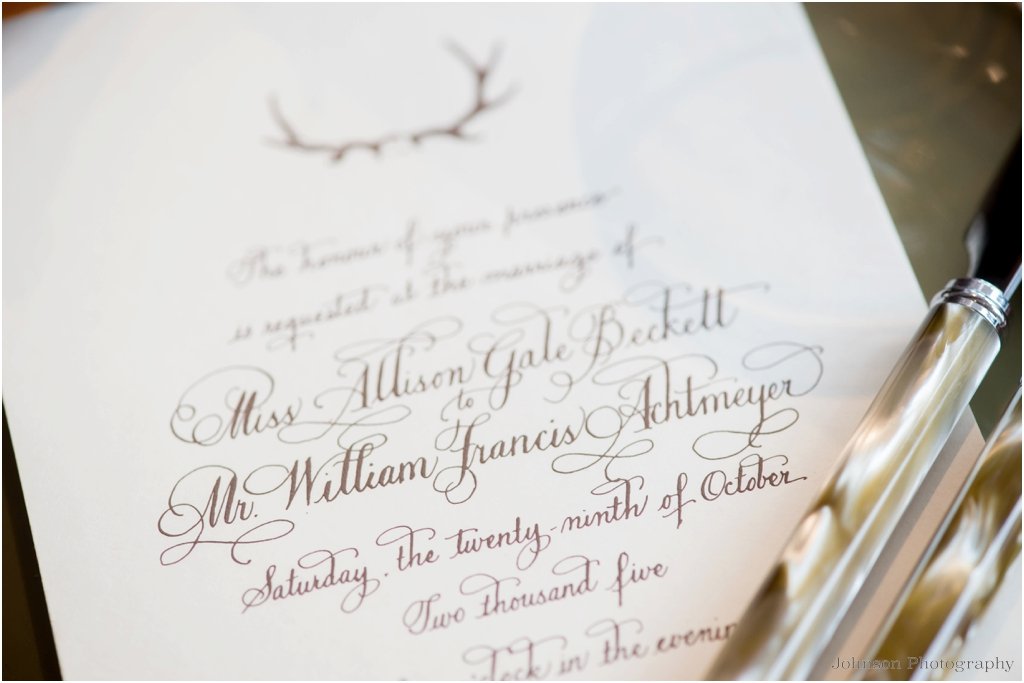 The honour of your presence
is requested at the marriage of
Miss Allison Gale Beckett
to
Mr. William Francis Achtmeyer
Saturday, the twenty-ninth of October
Two thousand five
in the evening
Johnson Photography